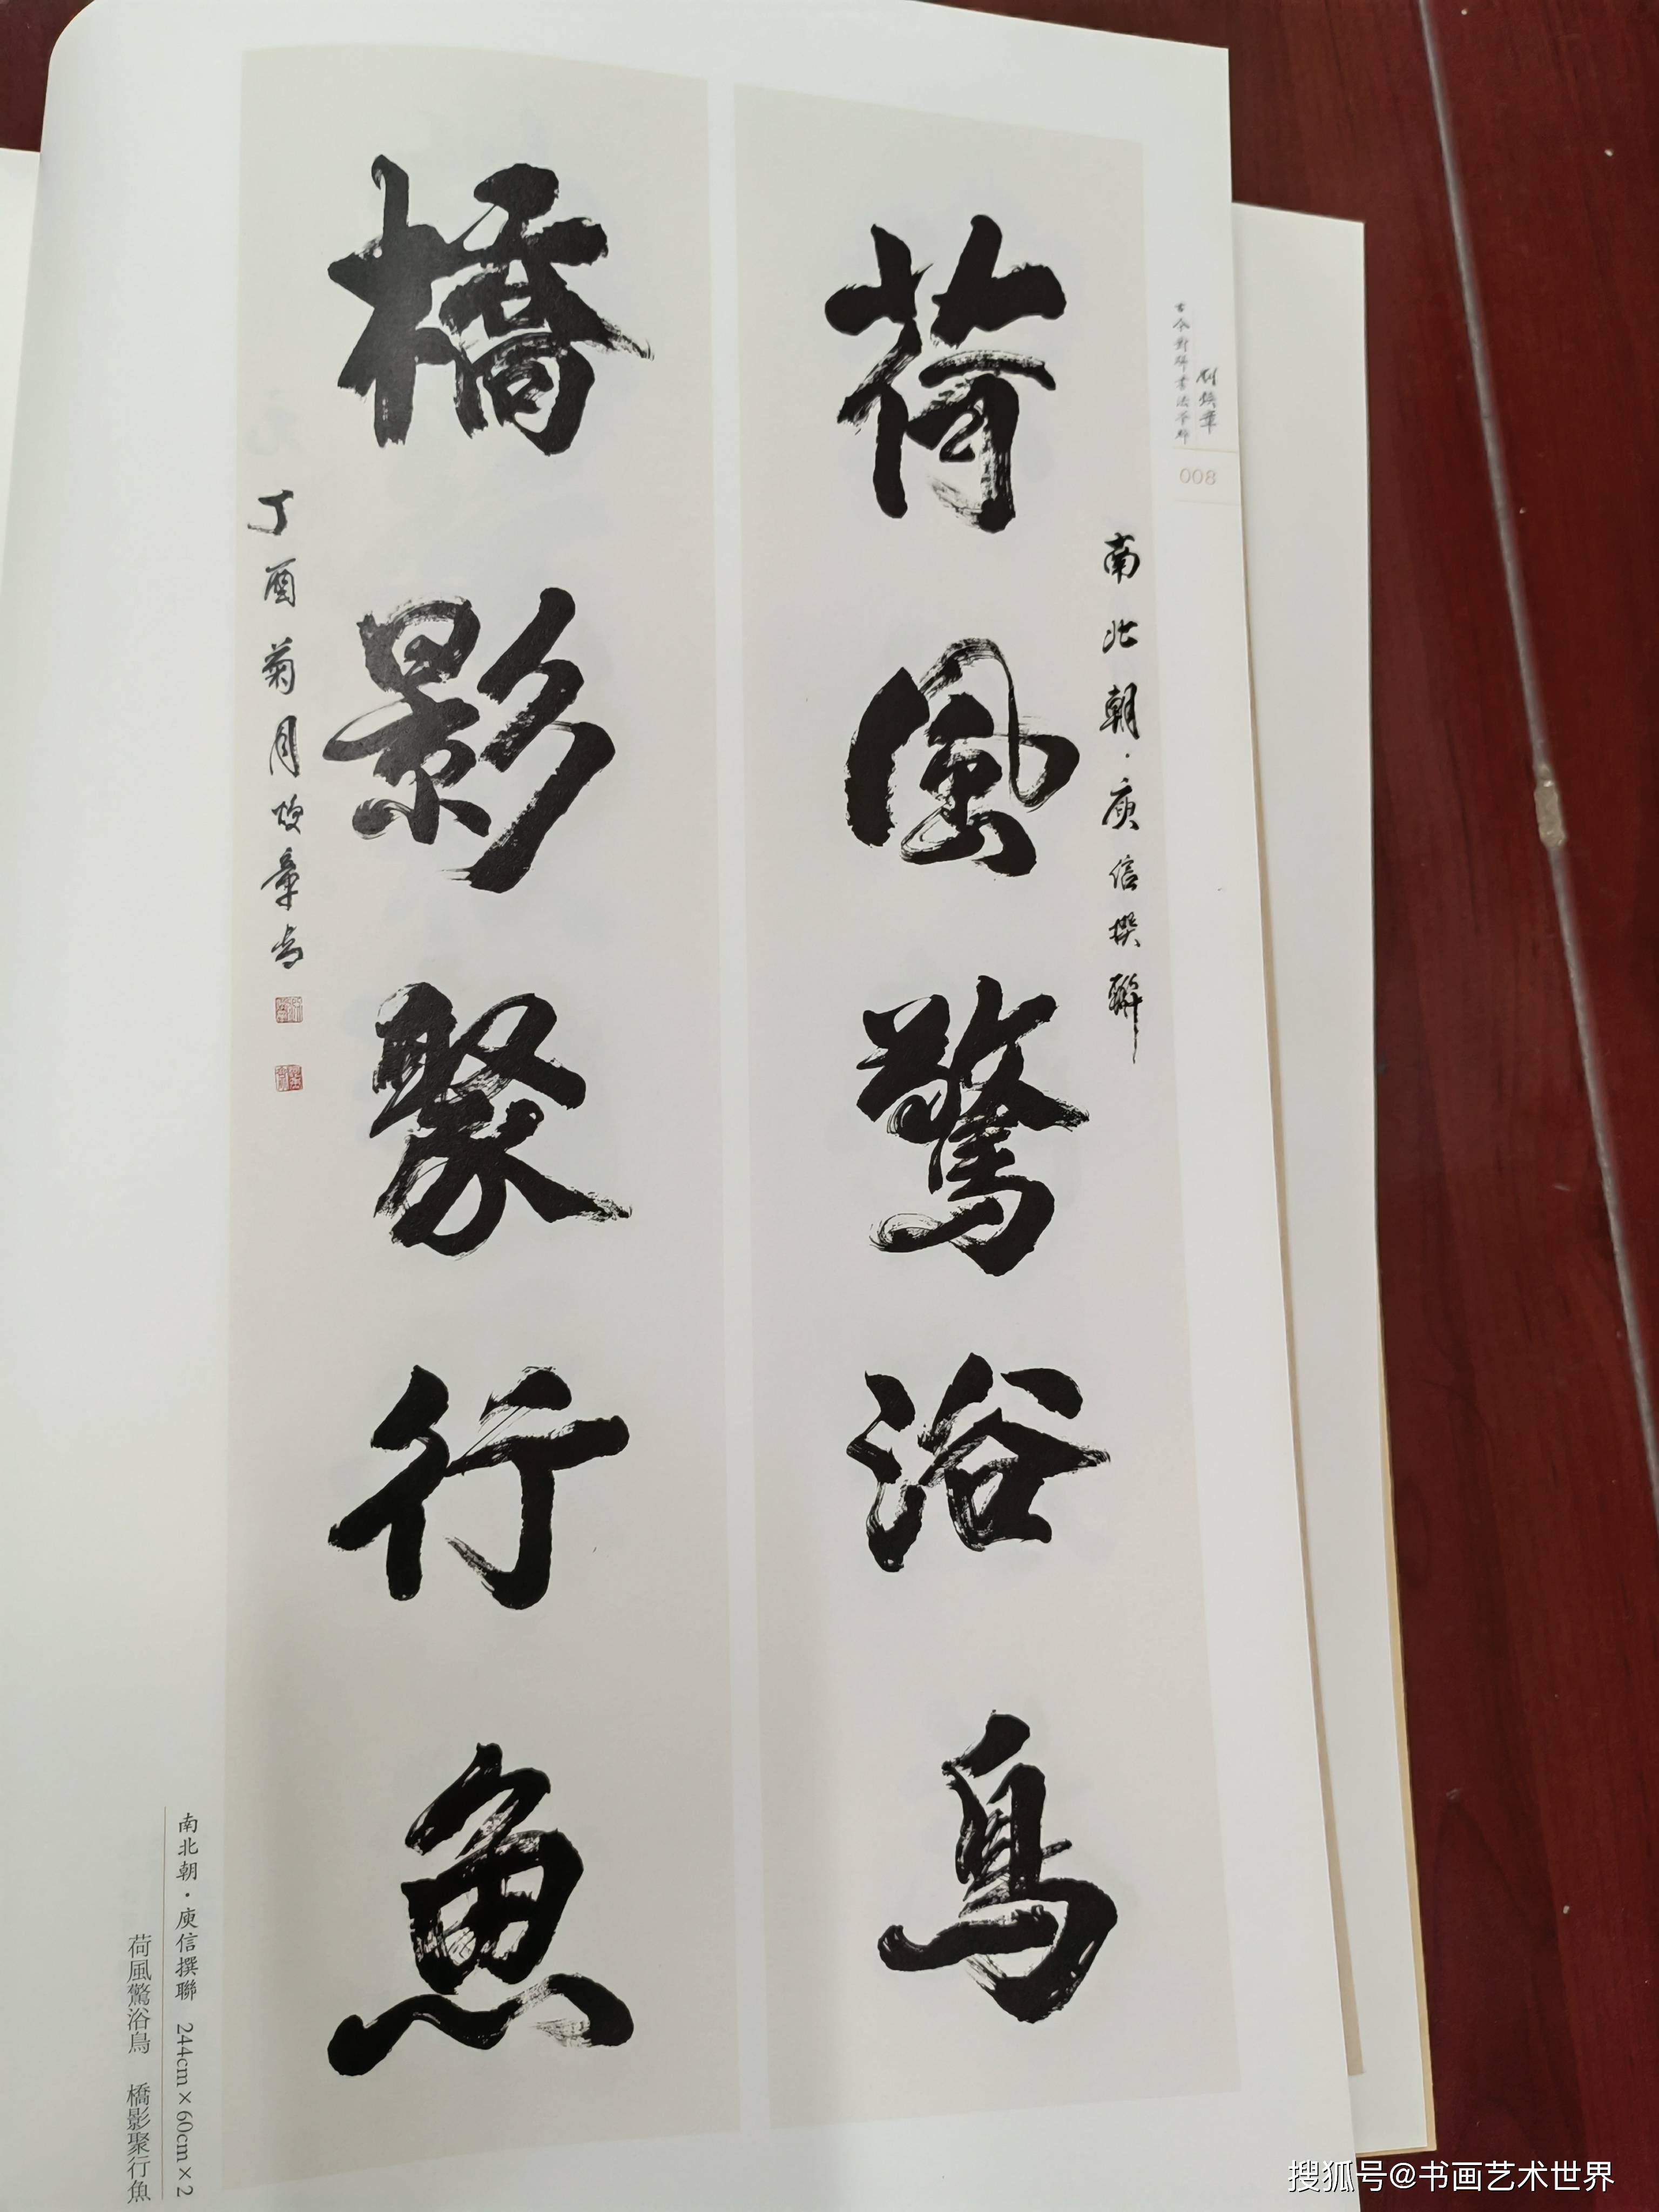 荷風驚浴鳥
南北朝·庾信撰聯
橋影聚行魚
丁酉菊月焕章书
古今對聯書法
008
南北朝·庾信撰聯 244cm×60cm×2
荷風驚浴鳥 橋影聚行魚
搜狐号@书画艺术世界